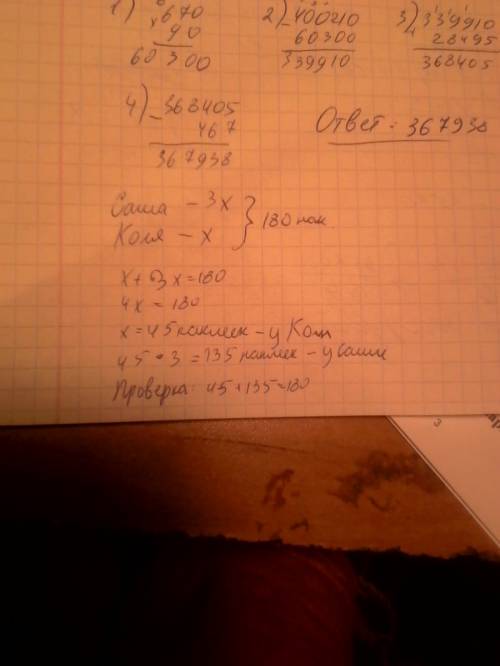 1) × 670
90
60300
2) - 400210
60300
339910
3) + 339910
28495
368405
4) - 368405
467
367938
Ответ: 367938
Саша - 3x
Коля - x
} 180 нак.
x + 3x = 180
4x = 180
x = 45 наклеек - у Коли
45 • 3 = 135 наклеек - у Саши
Проверка: 45 + 135 = 180